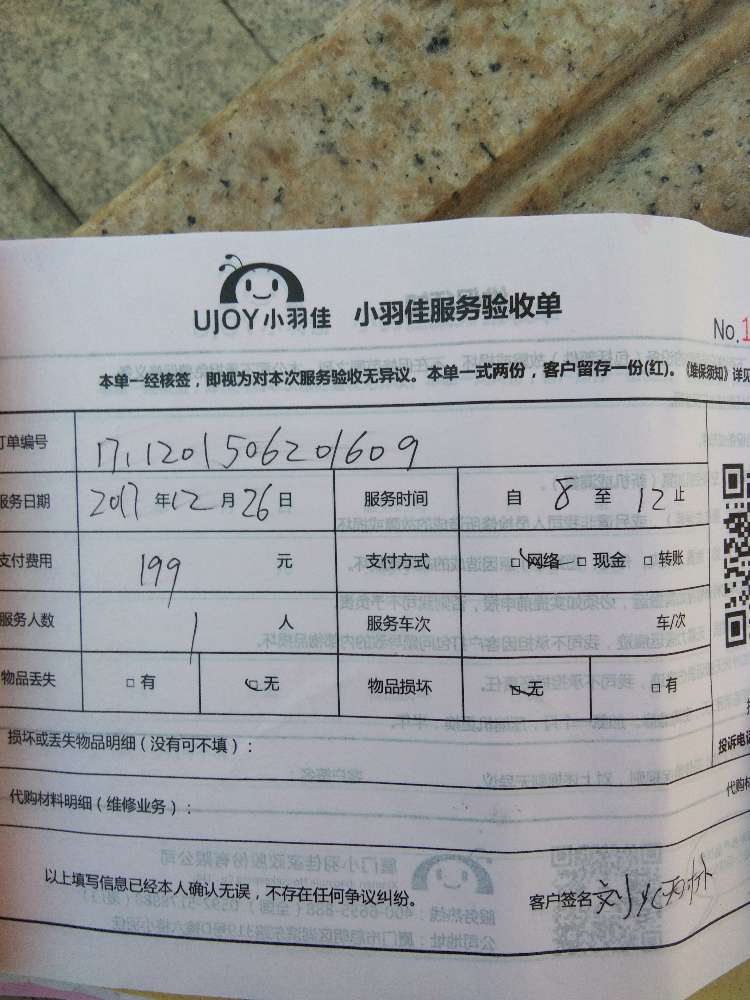 UJOY小羽佳 小羽佳服务验收单
No.1
本单一经核签，即视为对本次服务验收无异议。本单一式两份，客户留存一份(红)。《维保须知》详见
订单编号 1711201506201609
服务日期 2017年12月26日 服务时间 自8至12止
支付费用 199元 支付方式 □网络 □现金 □转账
服务人数 1人 服务车次 车/次
物品丢失 □有 □无 物品损坏 □无 □有
损坏或丢失物品明细（没有可不填）：
投诉电话
代购材料明细（维修业务）：
代购材
以上填写信息已经本人确认无误，不存在任何争议纠纷。
客户签名